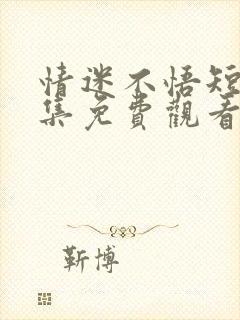 情迷不悟短
集免費觀看
靳博